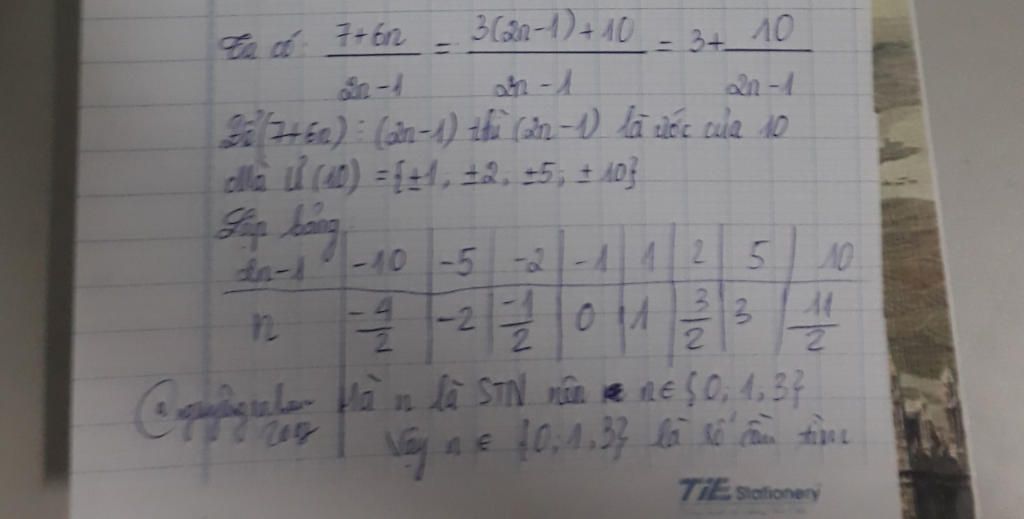 Ta có: 7+6n / 2n-1 = 3(2n-1)+10 / 2n-1 = 3+ 10 / 2n-1
Để (7+6n) ⋮ (2n-1) thì (2n-1) là ước của 10
Mà Ư(10) = {±1; ±2; ±5; ±10}
Lập bảng
2n-1 | -10 | -5 | -2 | -1 | 1 | 2 | 5 | 10
n | -9/2 | -2 | -1/2 | 0 | 1 | 3/2 | 3 | 11/2
Mà n là STN nên n ∈ {0; 1; 3}
Vậy n ∈ {0; 1; 3} là số cần tìm
TiE Stationery